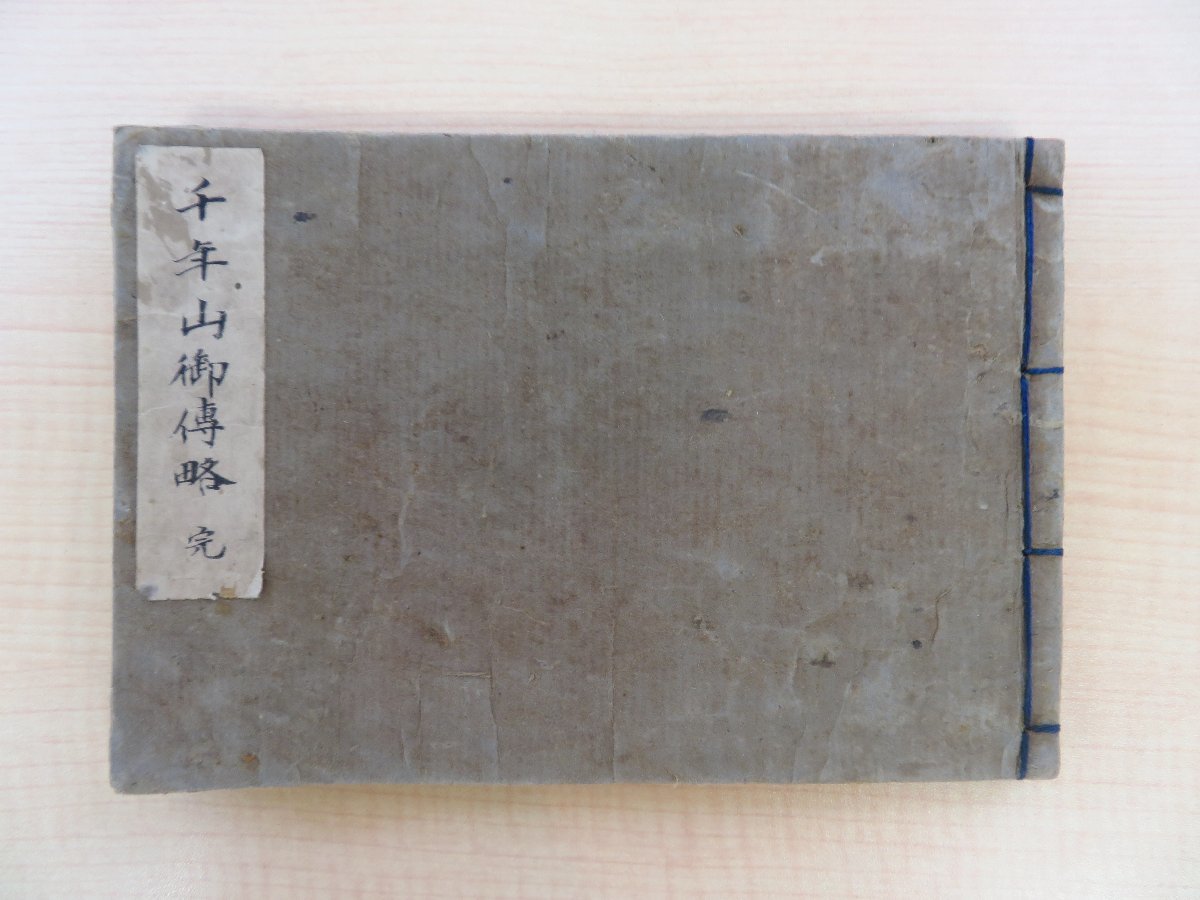 千年山御傳略 完